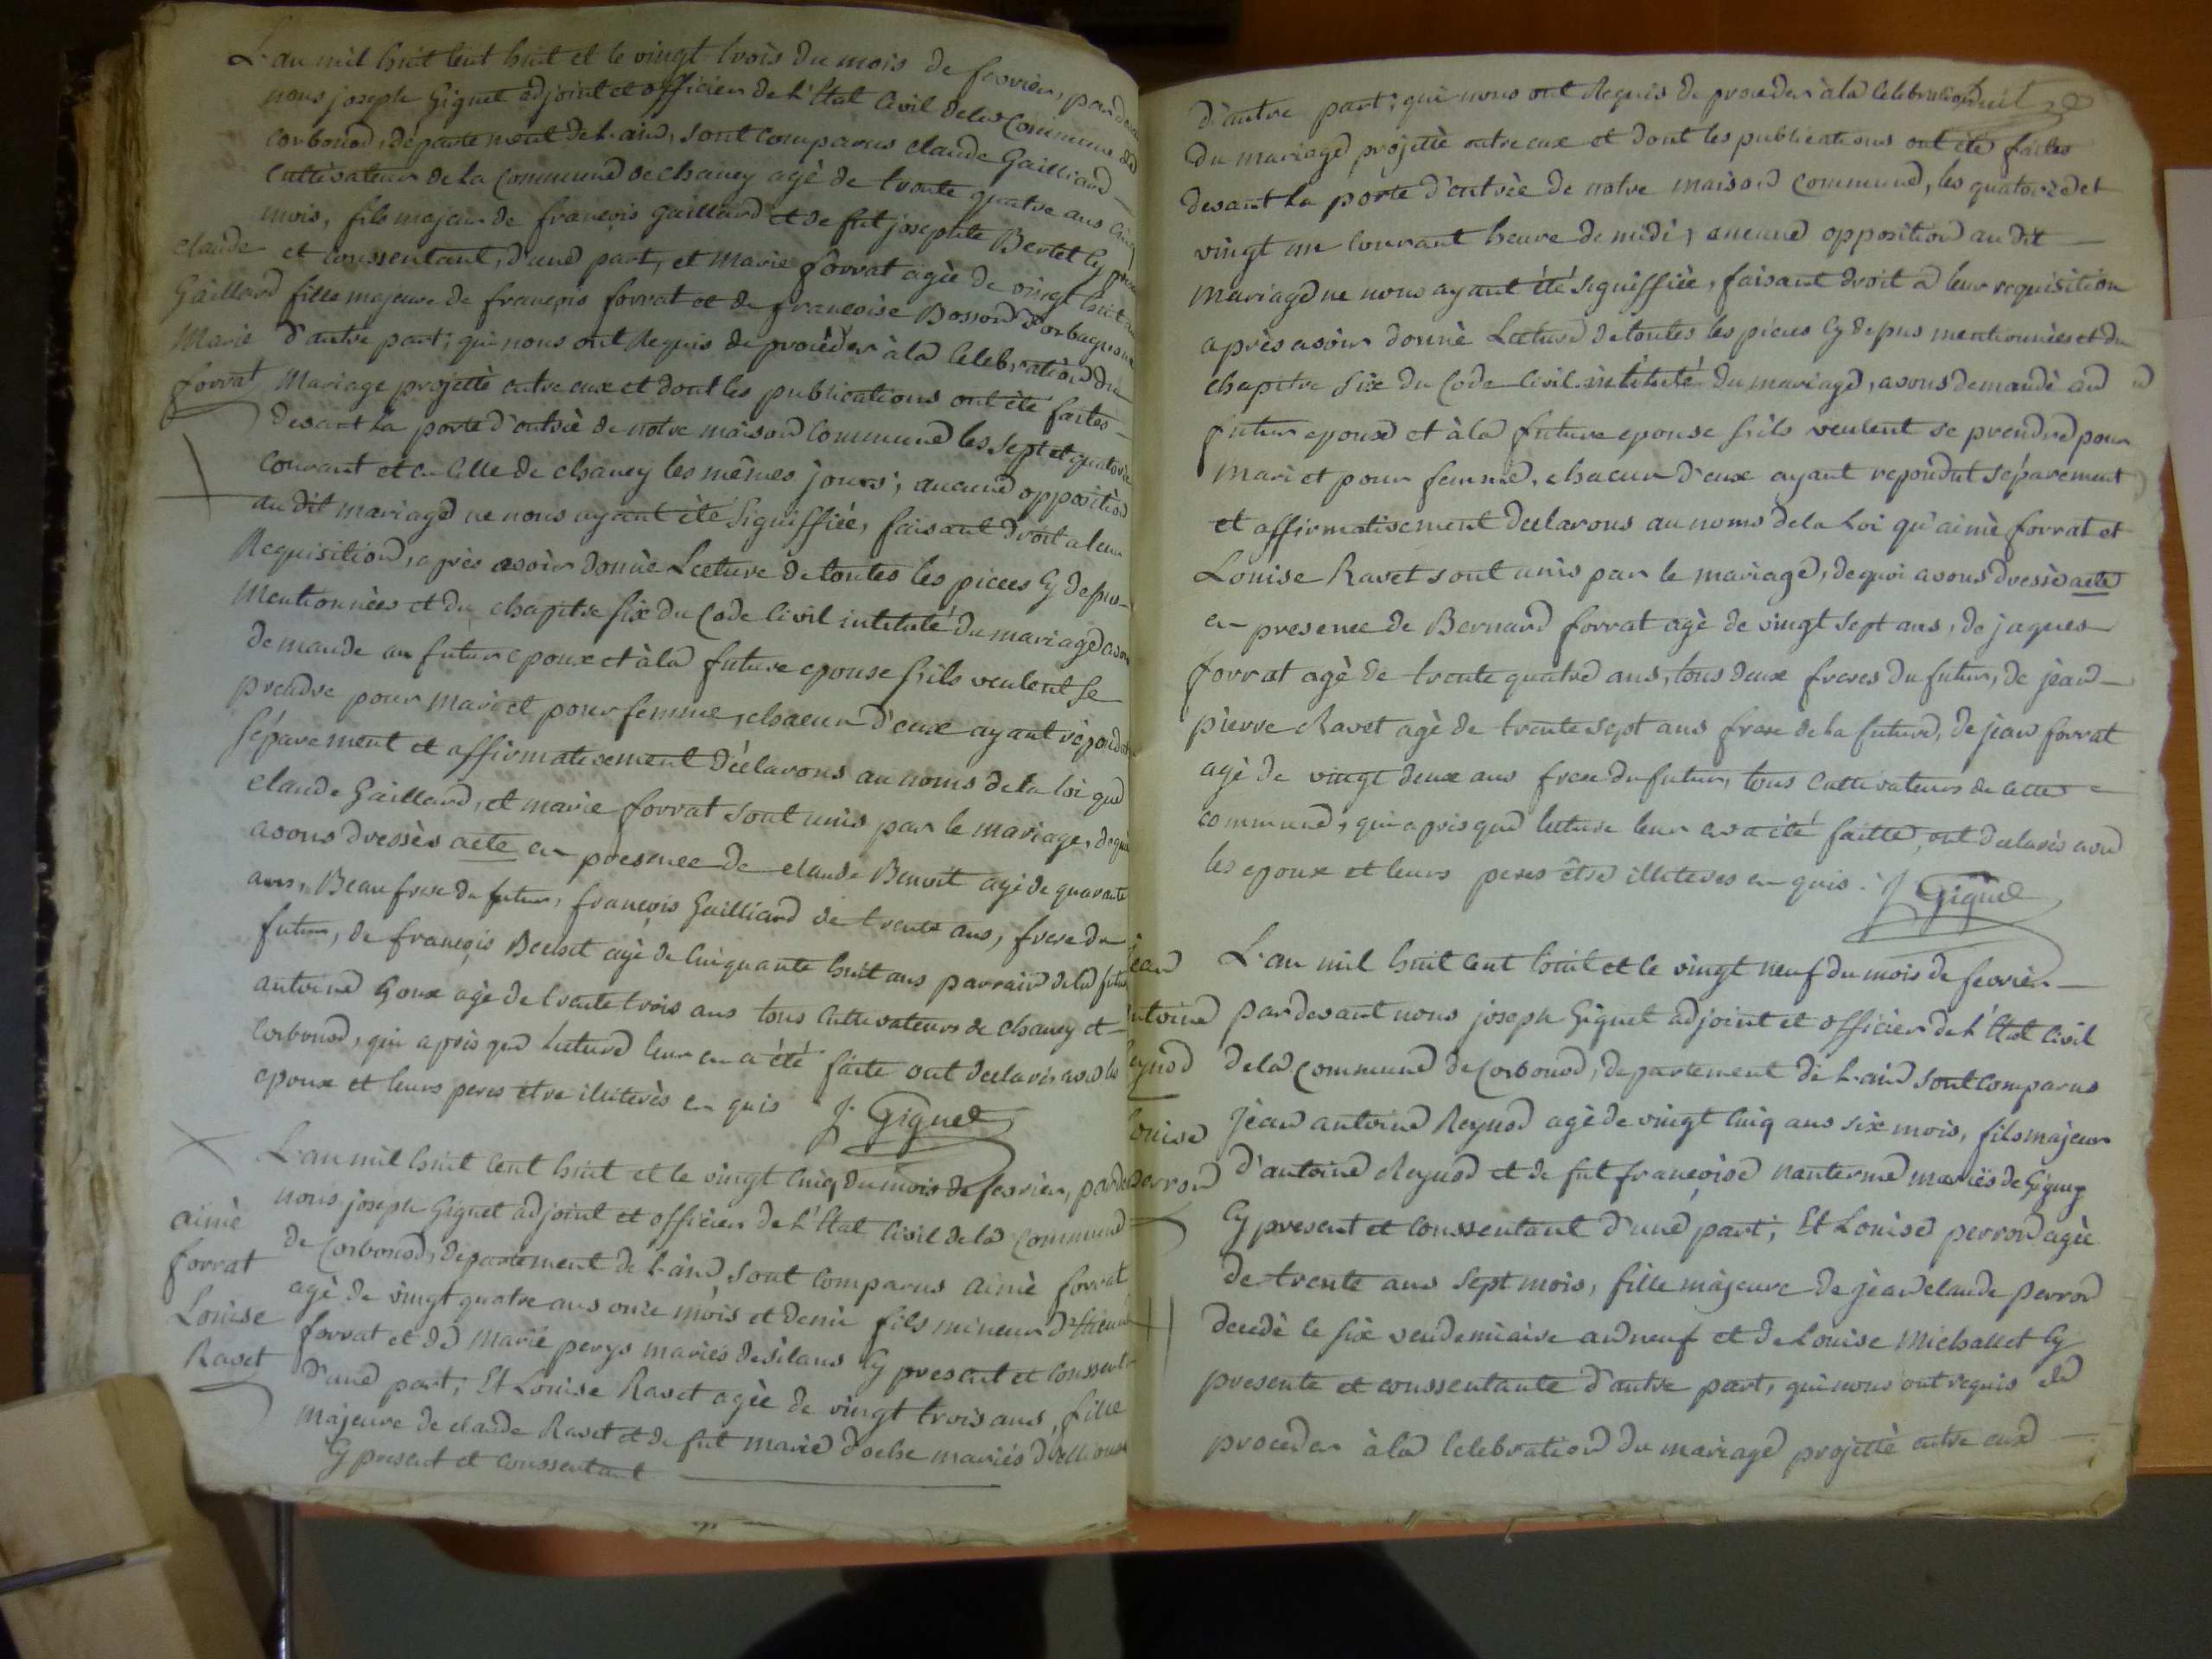 L'an mil huit cent huit et le vingt trois du mois de fevrier, pardevant
nous joseph Giguet adjoint et officier de l'Etat Civil dela Commune de
corbonod, departement de l'ain, sont comparus claude Gailliard
cultivateur de la Commune de chaney agè de trente quatre ans cinq
mois, fils majeur de françois Gaillard et de fut josephte Bertet Cy présent
claude et conssentant, d'une part, et Marie forrat agèe de vingt huit ans
Gaillard fille majeure de françois forrat et de françoise Bosson
Marie d'autre part; qui nous ont Requis de procèder à la Celebration du
forrat Mariage projettè entre eux et dont les publications ont été faites
devant la porte d'entrèe de notre maison Commune les sept et quatorze
courant et en Celle de chaney les mêmes jours; aucune opposition
au dit mariage ne nous ayant été signiffiée, faisant droit a leur
Requisition, après avoir donnè Lecture de toutes les pieces Cy depus
Mentionnèes et du chapitre six du Code Civil intitulé du mariage avons
demande au futur epoux et à la future epouse s'ils veulent se
prendre pour mari et pour femme, chacun d'eux ayant rèpondut
séparement et affirmativement déclarons au noms de la loi que
claude Gaillard, et marie forrat sont unis par le mariage, dequoi
avons dressès acte en presence de claude Benoit agè de quarante
ans, Beaufrere du futur, françois Gailliard de trente ans, frere du
futur, de françois agè de Cinquante huit ans parrain de la future
antoine Goux agè de trente trois ans tous Cultivateurs de chaney et
Corbonod, qui après que Lecture leur en a été faite ont declarés avec les
epoux et leurs peres être illiterès en quis J. Giguet
L'an mil huit cent huit et le vingt Cinq du mois de fevrier, pardevant
nous joseph Giguet adjoint et officier de l'Etat Civil de la Commune
aimè de Corbonod, departement de l'ain, sont Comparus aimè forrat
forrat agè de vingt quatre ans onze mois et demi fils mineur d'Etienne
Louise forrat et de Marie perys mariès de silans Cy present et Conssentant
Ravet D'une part; Et Louise Ravet agèe de vingt trois ans, fille
Majeure de claude Ravet et de fut marie doche mariés
Cy present et conssentant
D'autre part; qui nous ont Requis de proceder à la Celebration
Du mariage projettè entre eux et dont les publications ont été faites
devant la porte d'entrèe de notre maison Commune, les quatorze et
vingt un Courant heure de midi, aucune opposition au dit
Mariage ne nous ayant été signiffiée, faisant droit a leur requisition
après avoir donnè Lecture de toutes les pieces Cy depus mentionnèes et du
chapitre six du Code Civil intitulé du mariage, avons demandè au
futur epoux et à la future epouse s'ils veulent se prendre pour
Mari et pour femme, chacun d'eux ayant repondut séparement
et affirmativement declarons au noms de la Loi qu'aimè forrat et
Louise Ravet sont unis par le mariage, dequoi avons dressès acte
en presence de Bernard forrat agè de vingt sept ans, de jaques
forrat agè de trente quatre ans, tous deux freres du futur, de jean
pierre Ravet agè de trente sept ans frere de la future, de jean forrat
agè de vingt deux ans frere du futur, tous Cultivateurs de cette
commune, qui après que lecture leur en a été faitte, ont declarés avec
les epoux et leurs peres être illiteres en quis. J. Giguet
jean L'an mil huit cent huit et le vingt neuf du mois de fevrier
antoine pardevant nous joseph Giguet adjoint et officier de l'Etat Civil
Reynod dela Commune de Corbonod, departement de l'ain sont comparus
louise jean antoine Reynod agè de vingt Cinq ans six mois, fils majeur
perron d'antoine Reynod et de fut françoise nanterme mariès de Gignez
Cy present et Conssentant d'une part; Et Louise perron agèe
de trente ans sept mois, fille majeure de jean claude perron
decedè le six vendemiaire an neuf et de Louise Michallet Cy
presente et conssentante d'autre part, qui nous ont requis de
proceder à la Celebration du mariage projettè entre eux